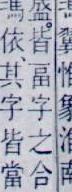 翼惟象淮南
盛。皆畐字之合
馮依、其字皆當